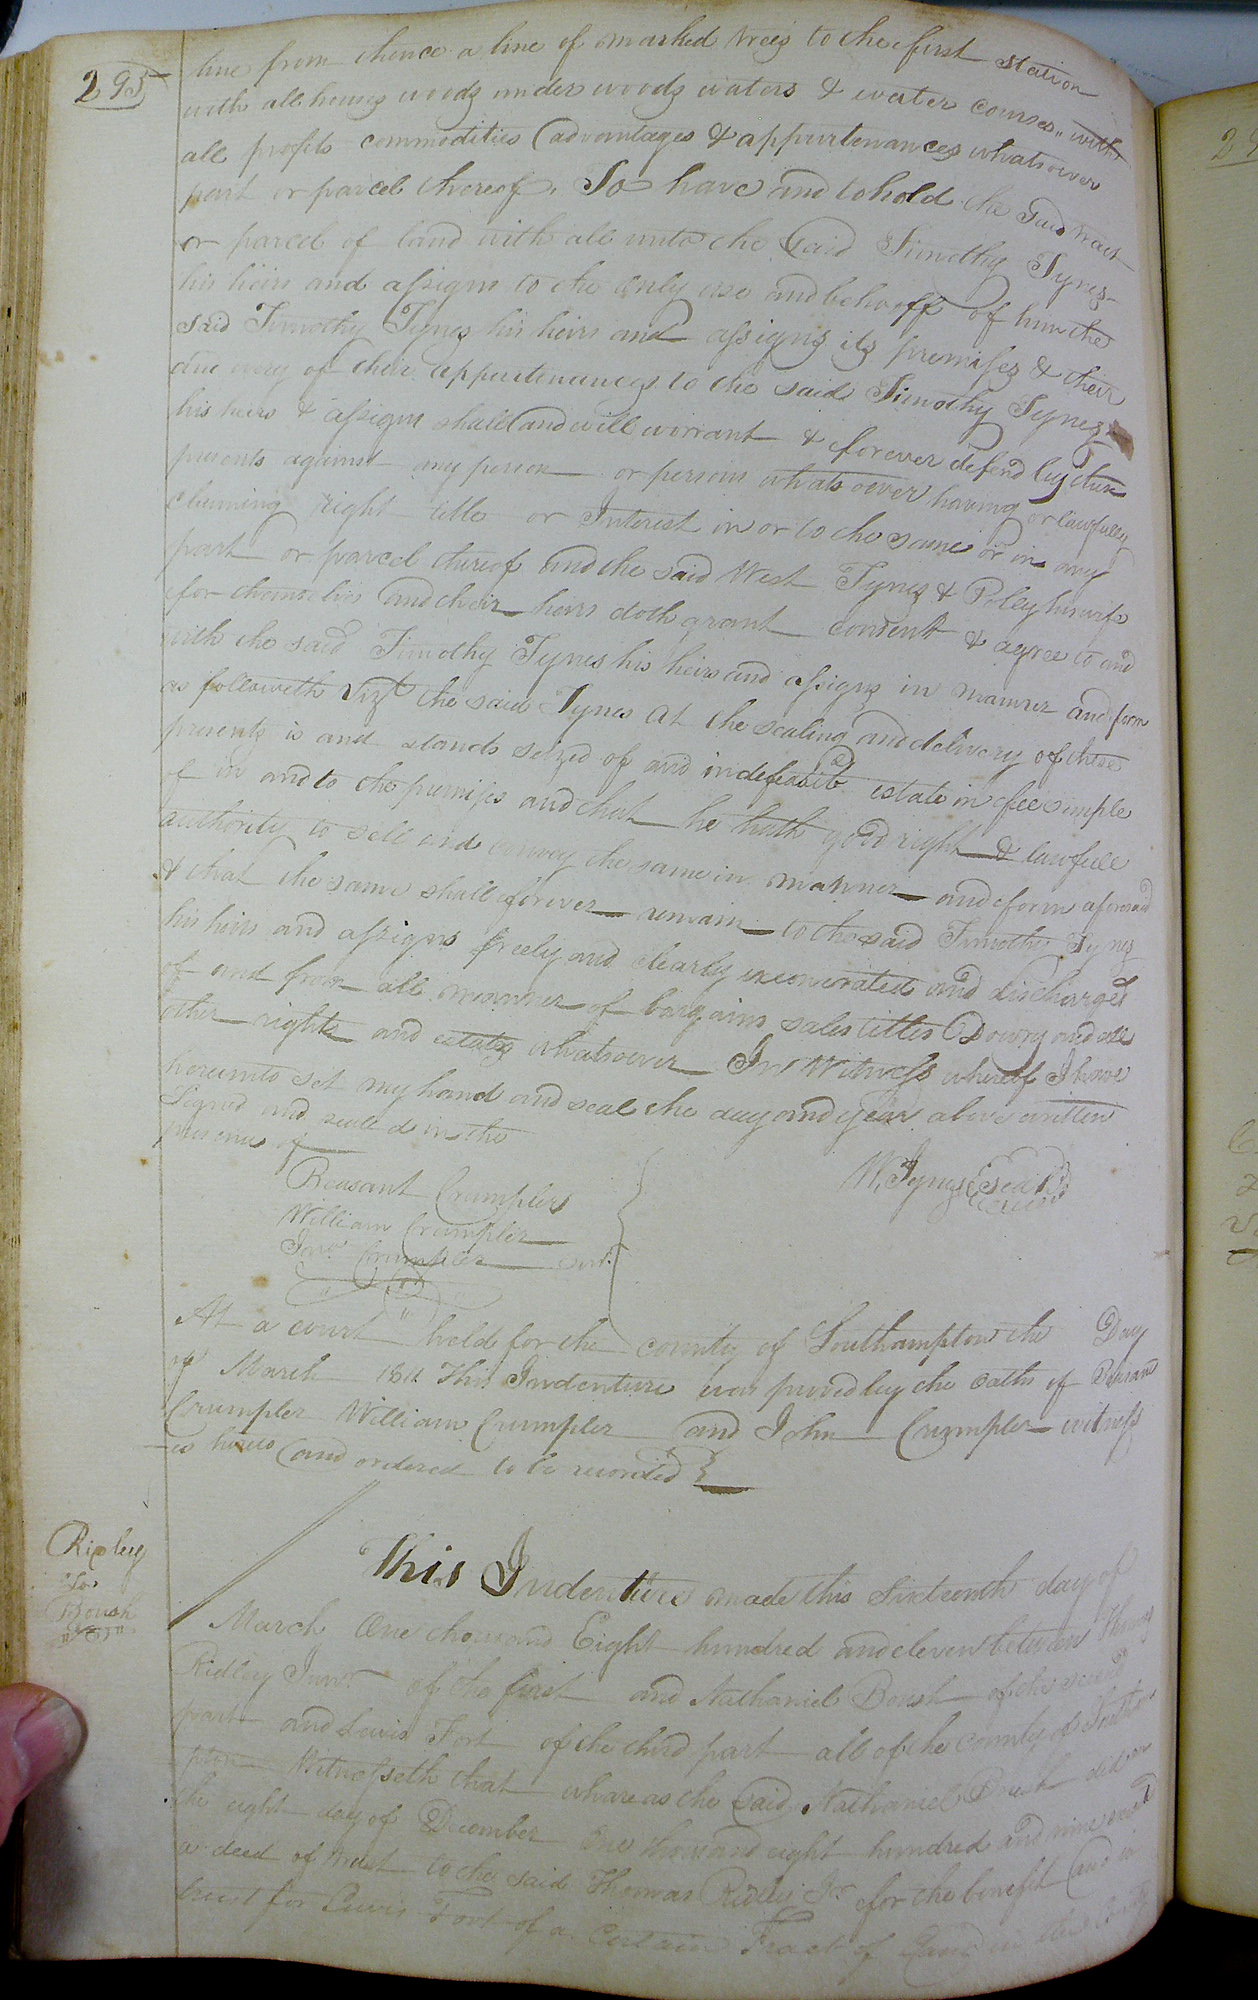 295
line from thence a line of marked trees to the first station
with all houses woods under woods waters & water courses with
all profits commodities advantages & appurtenances whatsoever
part or parcel thereof. To have and to hold the said tract
or parcel of land with all unto the said Timothy Tynes
his heirs and assigns to the only use and behooff of him the
said Timothy Tynes his heirs and assigns its premises & their
and every of their appurtenances to the said Timothy Tynes
his heirs & assigns shall and will warrant & forever defend by these
presents against any person or persons whatsoever having or lawfully
claiming right title or Interest in or to the same or in any
part or parcel thereof and the said West Tynes & Polley his wife
for themselves and their heirs doth grant consent & agree to and
with the said Timothy Tynes his heirs and assigns in manner and form
as followeth Vizt the said Tynes at the sealing and delivery of these
presents is and stands seized of and indefeasible estate in fee simple
of in and to the premises and that he hath good right & lawfull
authority to sell and convey the same in manner and form aforesaid
& that the same shall forever remain to the said Timothy Tynes
his heirs and assigns freely and clearly exonerated and discharged
of and from all manner of bargains sales titles Dowry and all
other rights and estates whatsoever In Witness whereof I have
hereunto set my hand and seal the day and year above written
Signed and sealed in the
presence of
W. Tynes seal
Beasant Crumpler
William Crumpler
Jno. Crumpler senr.
At a court held for the county of Southampton the Day
of March 1811 This Indenture was proved by the oaths of Beasant
Crumpler William Crumpler and John Crumpler witness
es hereto and ordered to be recorded
Ridley
To
Boush
This Indenture made this Sixteenth day of
March One thousand Eight hundred and eleven between Thomas
Ridley Junr. of the first and Nathaniel Boush of the second
part and Lewis Fort of the third part all of the county of Southam
pton Witnesseth that whareas the said Nathaniel Boush did on
the eight day of December One thousand eight hundred and nine
a deed of trust to the said Thomas Ridley Jr for the benefit and in
trust for Lewis Fort of a Certain Tract of Land in the